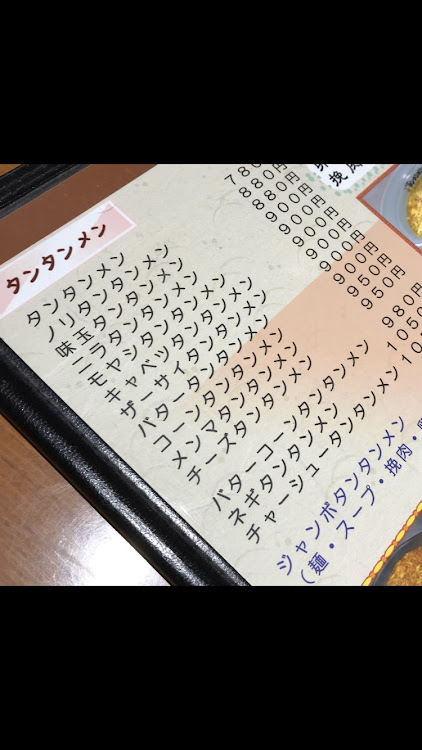 タンタンメン
タンタンメン 780円
ノリタンタンメン 880円
味玉タンタンメン 880円
ニラタンタンメン 900円
モヤシタンタンメン 900円
キャベツタンタンメン 900円
ザーサイタンタンメン 900円
バタータンタンメン 900円
コーンタンタンメン 900円
メンマタンタンメン 950円
チーズタンタンメン 950円
バターコーンタンタンメン 980円
ネギタンタンメン 1050
チャーシュータンタンメン 10
ジャンボタンタンメン
(麺・スープ・挽肉・
挽肉